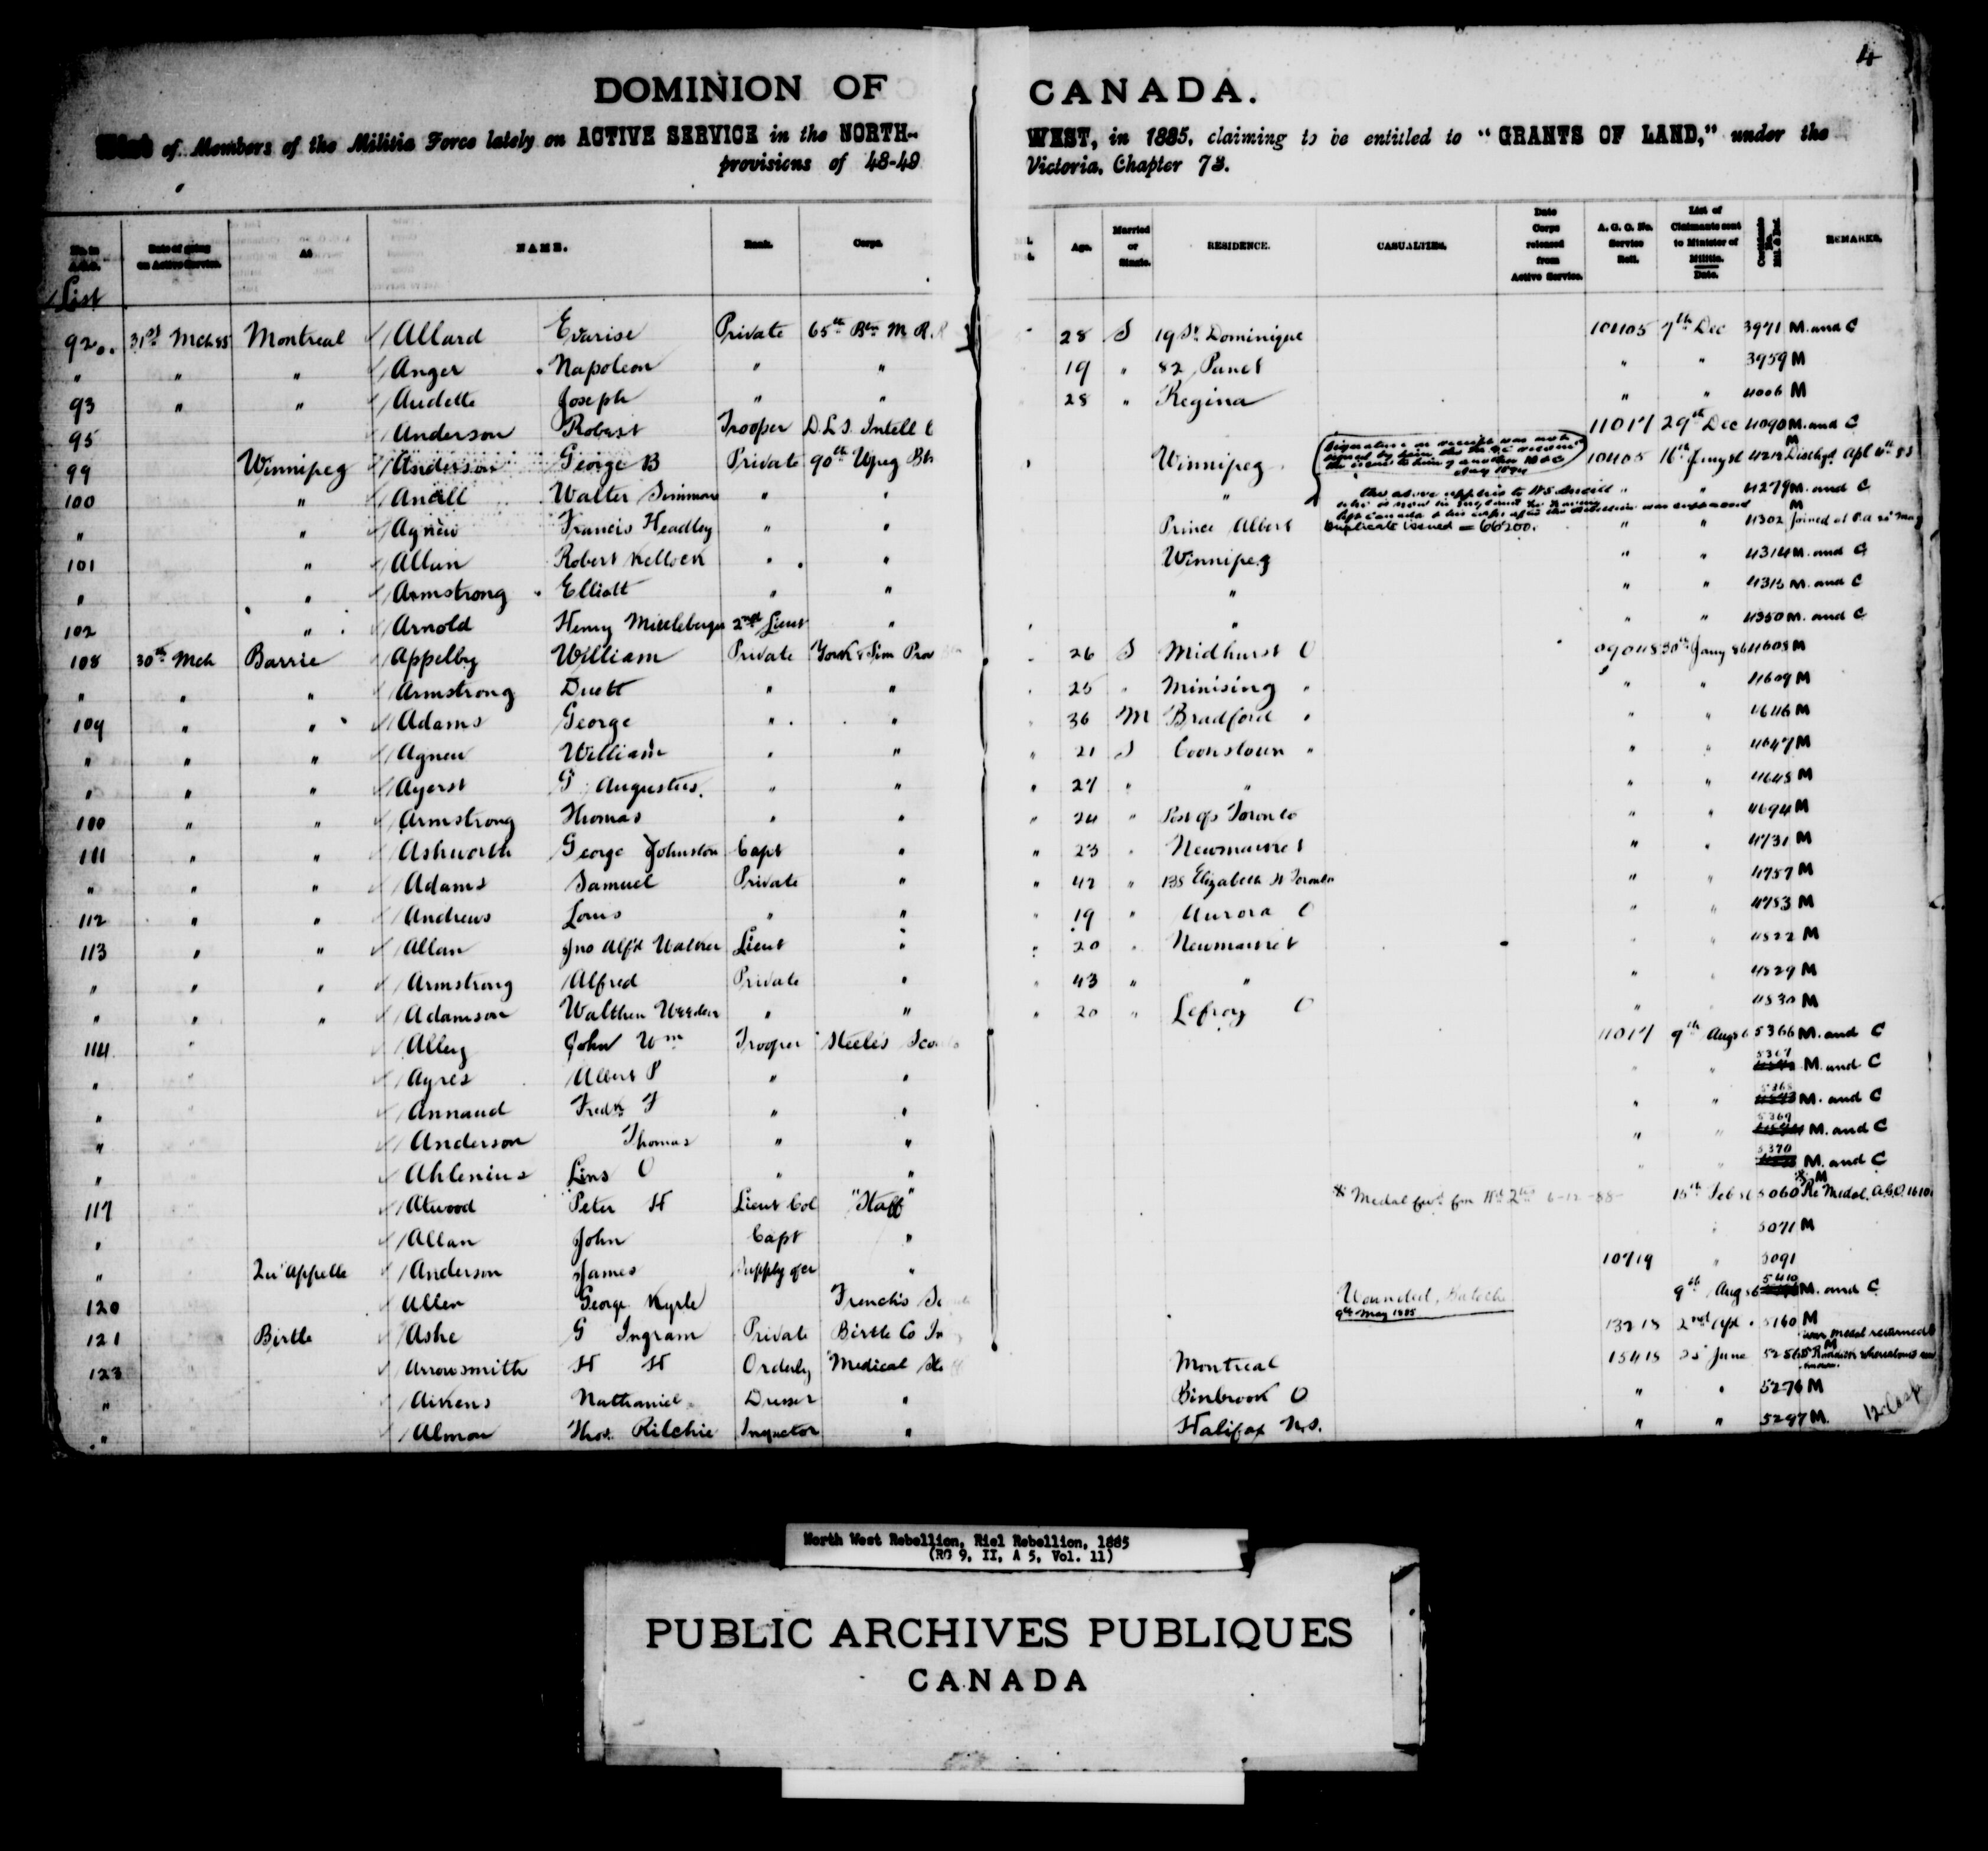 4
DOMINION OF CANADA.
List of Members of the Militia Force lately on ACTIVE SERVICE in the NORTH-WEST, in 1885, claiming to be entitled to "GRANTS OF LAND," under the
provisions of 48-49 Victoria, Chapter 73.
No. in A.G.O. List Date of going on Active Service. At NAME. Rank. Corps. Age. Married or Single. RESIDENCE. CASUALTIES. Date Corps released from Active Service. A. G. O. No. Service Roll. List of Claimants sent to Minister of Militia. Date. Certificate No. REMARKS.
92 31st Mch 85 Montreal Allard Evarise Private 65th Btn M. R. 28 S 19 St Dominique 10405 7th Dec 3971 M. and C
" " " Anger Napoleon " " 19 " 82 Panet " " 3959 M
93 " " Audette Joseph " " 28 " Regina " " 4006 M
95 Anderson Robert Trooper D.L.S. Intell C 11017 29th Dec 4090 M. and C
99 Winnipeg Anderson George B Private 90th Wpeg Btn Winnipeg 10405 16th Jany 86 4212 M Dischgd Apl 4th 85
100 " Ancell Walter Simmons " " " " " 4279 M. and C
" " Agnew Francis Headley " " Prince Albert Duplicate issued = 66200. " " 4302 M Joined at P.A.
101 " Allan Robert Kellock " " Winnipeg " " 4314 M. and C
" " Armstrong Elliott " " " " " 4315 M. and C
102 " Arnold Henry 2nd Lieut " " " " 4350 M. and C
108 30th Mch Barrie Appelby William Private York & Sim Prov 26 S Midhurst O 09048 30th Jany 86 4608 M
" " " Armstrong Duett " " 25 " Minising " " " 4609 M
109 " " Adams George " " 36 M Bradford " " " 4646 M
" " " Agnew William " " " 21 S Cookstown " " " 4647 M
" " " Ayerst G Augustus. " " " 27 " " " " 4648 M
100 " " Armstrong Thomas " " " 24 " Toronto " " 4694 M
111 " " Ashworth George Johnston Capt " " 23 " Newmarket " " 4731 M
" " " Adams Samuel Private " " 42 " 138 Elizabeth St Toronto " " 4757 M
112 " " Andrews Louis " " " 19 " Aurora O " " 4783 M
113 " " Allan Jno Alfd Walker Lieut " " 20 " Newmarket " " 4822 M
" " " Armstrong Alfred Private " " 43 " " " " 4829 M
" " " Adamson " " " 20 " Lefroy O " " 4830 M
114 " Alley John Wm Trooper Steele's Scouts 11017 9th Aug 86 5366 M. and C
" " Ayres Albert P " " " " 5367 M. and C
" " Annaud Fredk F " " " " 5368 M. and C
" Anderson Thomas " " " " 5369 M. and C
" Ahlenius Lins O " " " " 5370 M. and C
117 Atwood Peter H Lieut Col "Staff" * Medal 6-12-88 15th Feb 86 5060 M Re Medal, A.G.O. 1610
" Allan John Capt " " 5071 M
" Qu'Appelle Anderson James Supply ofcr " 10719 " 5091
120 Allen George Kyrle French's Sc Wounded, Batoche 9th May 1885 9th Aug 86 5410 M. and C
121 Birtle Ashe G Ingram Private Birtle Co In 13218 2nd Apl 5160 M
123 Arrowsmith H H Orderly "Medical Sta Montreal 15418 25 June 5256 M
" Aikens Nathaniel Dresser " Binbrook O " " 5276 M
" Almon Thos. Ritchie Inspector " Halifax N.S. " " 5297 M.
North West Rebellion, Riel Rebellion, 1885
(RG 9, II, A 5, Vol. 11)
PUBLIC ARCHIVES PUBLIQUES
CANADA